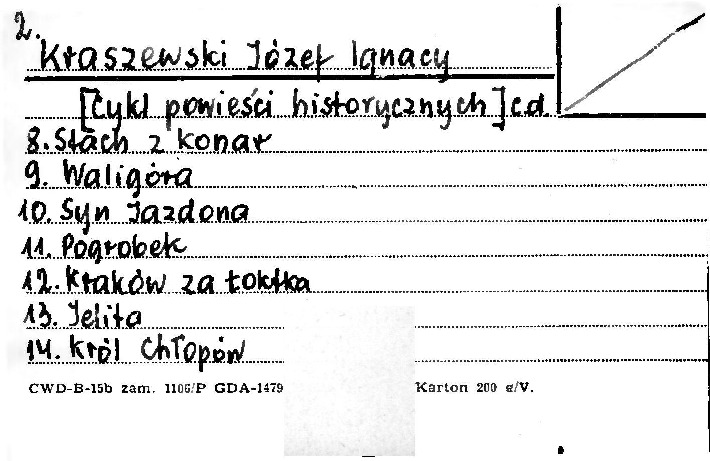 2.
Kraszewski Józef Ignacy
[Cykl powieści historycznych] c.d.
8. Stach z Konar
9. Waligóra
10. Syn Jazdona
11. Pogrobek
12. Kraków za Łoktka
13. Jelita
14. Król Chłopów
CWD-B-15b zam. 1106/P GDA-1479 Karton 200 g/V.